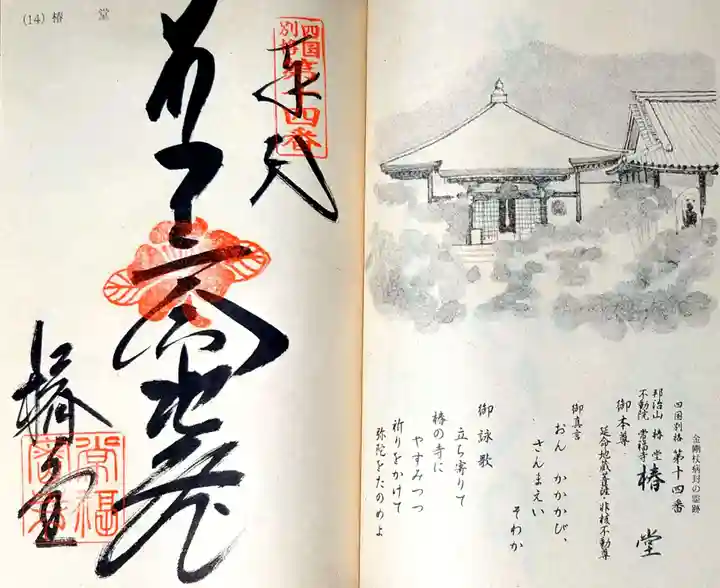 (14) 椿 堂
四国
別格
第十四番
奉
椿堂
常福
金剛杖病封の霊跡
四国別格 第十四番
邦治山 椿堂
不動院 常福寺
椿堂
御本尊
延命地蔵菩薩・非核不動尊
御真言
おん かかかび、
さんまえい
そわか
御詠歌
立ち寄りて
椿の寺に
やすみつつ
祈りをかけて
弥陀をたのめよ